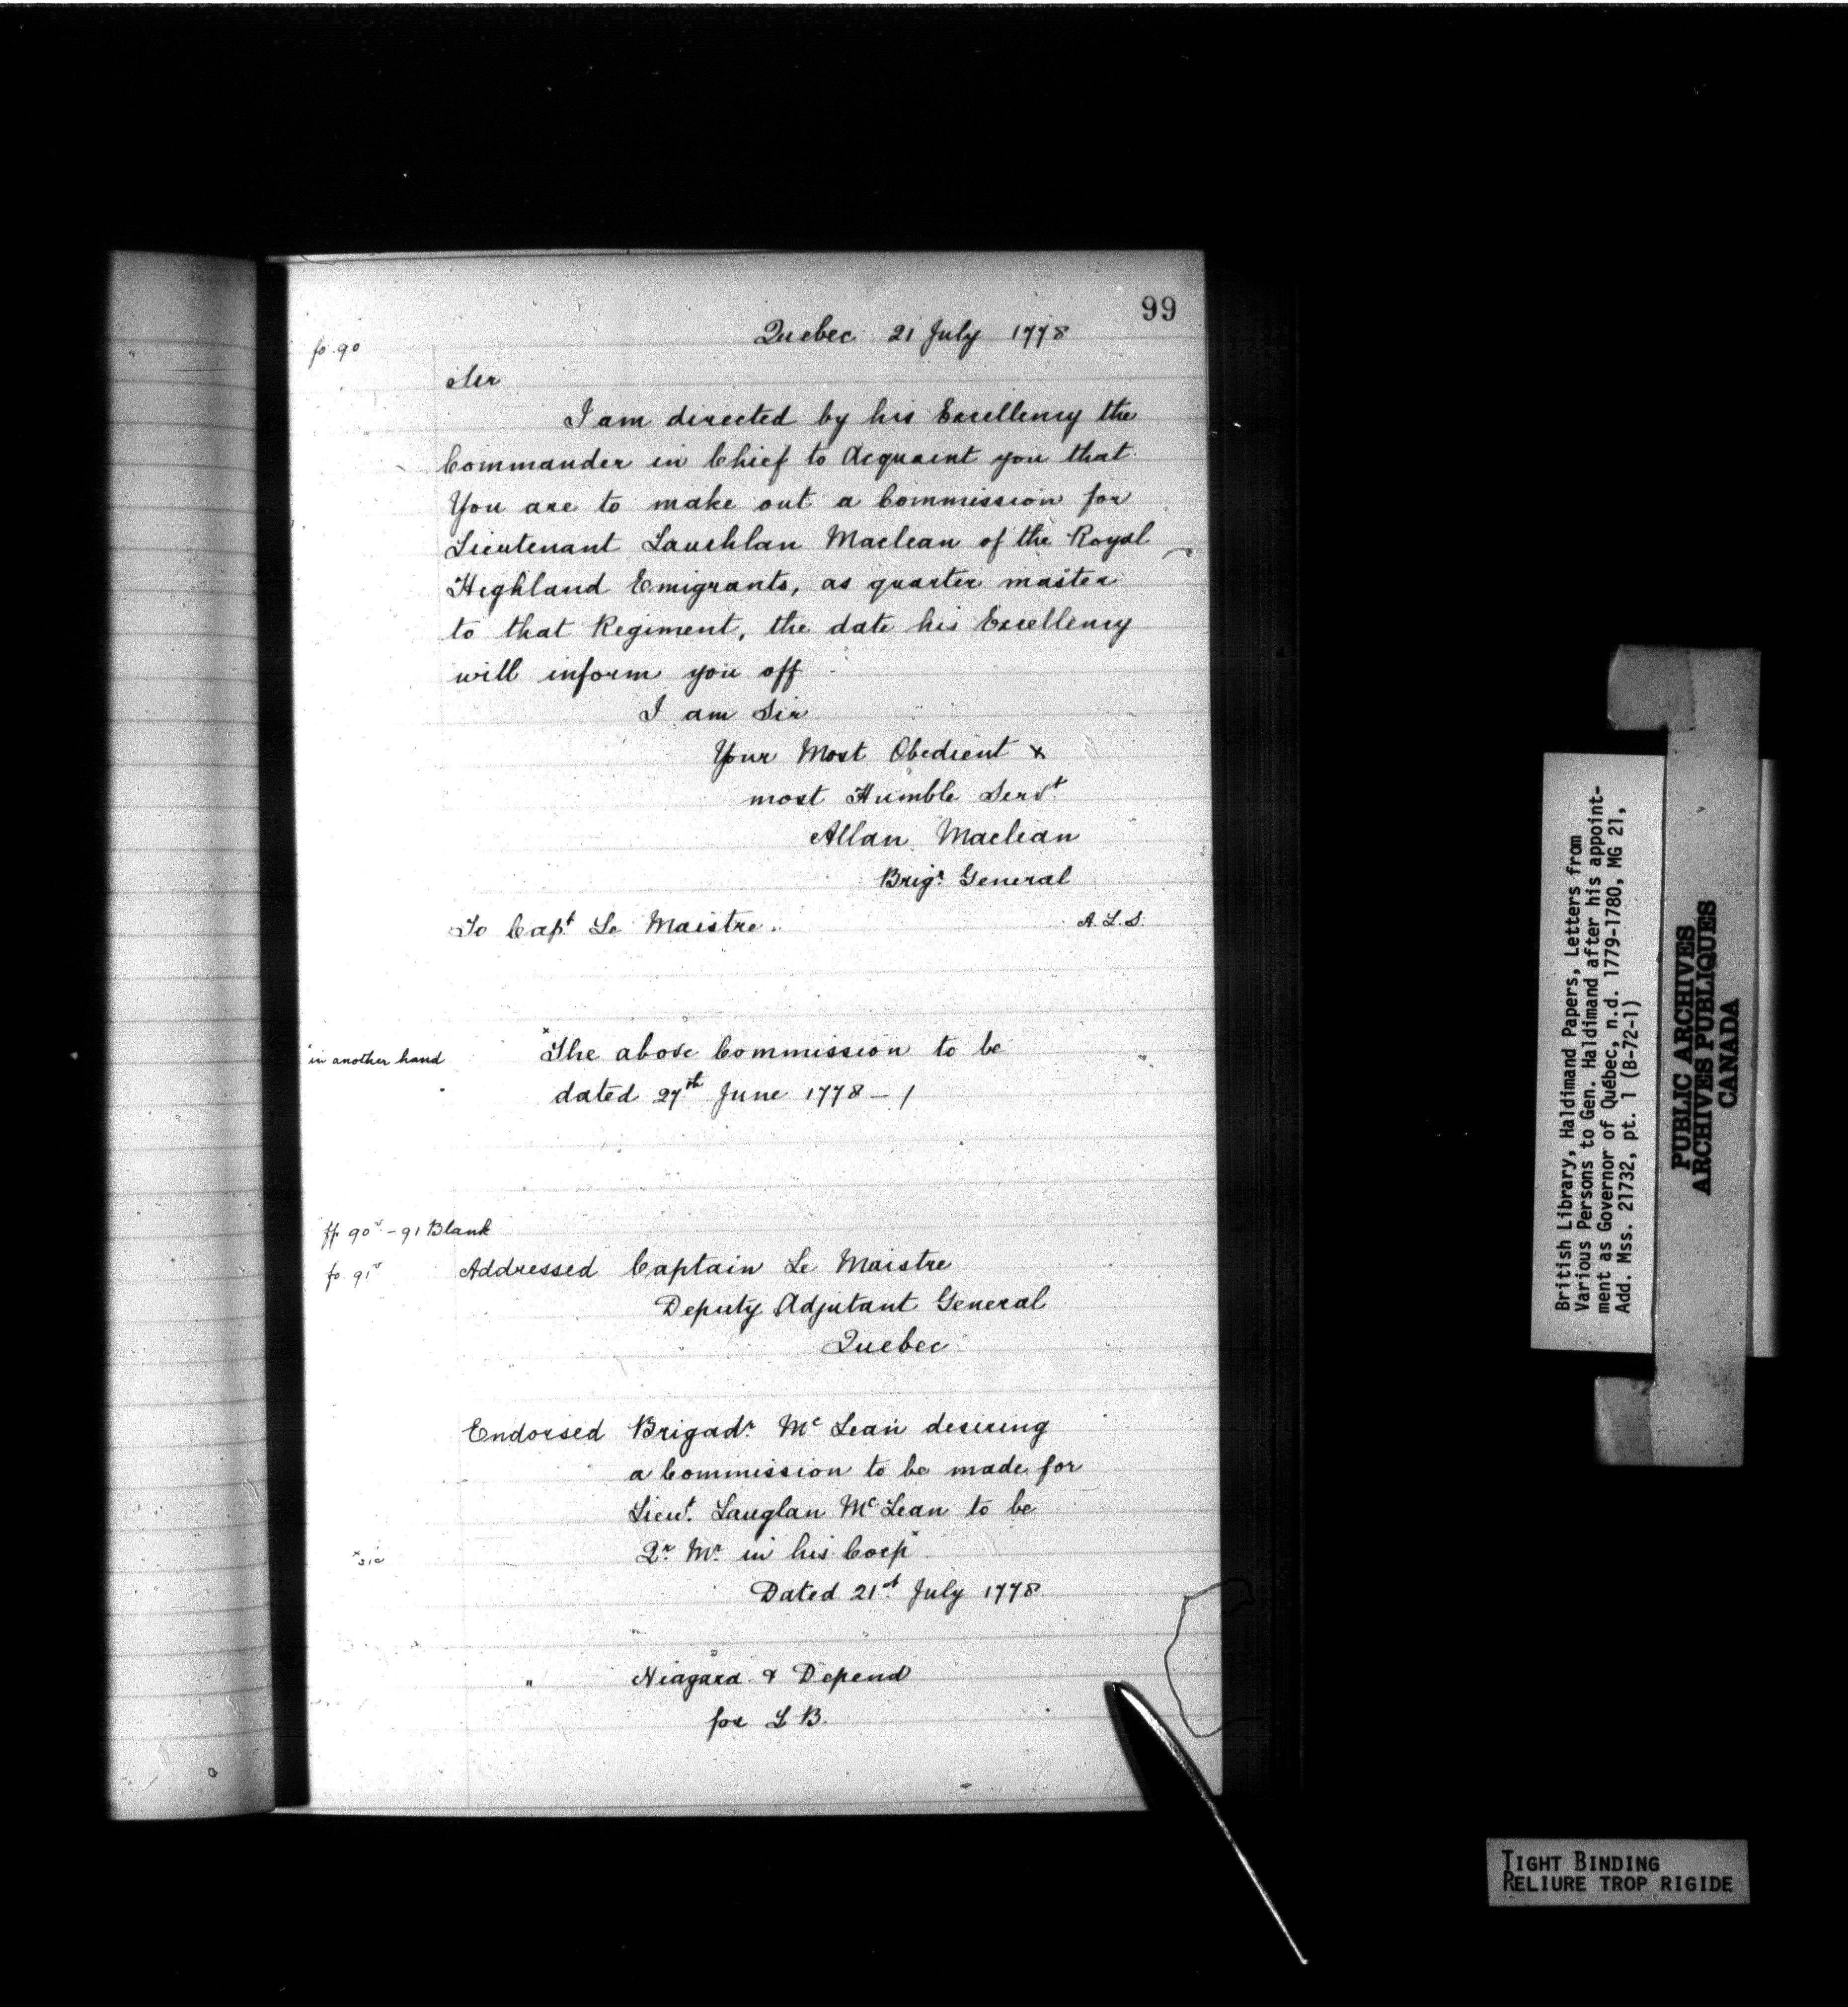 99
fo. 90
Quebec 21 July 1778
Sir
I am directed by his Excellency the
Commander in Chief to Acquaint you that
You are to make out a Commission for
Lieutenant Lauchlan Maclean of the Royal
Highland Emigrants, as quarter master
to that Regiment, the date his Excellency
will inform you off
I am Sir
Your Most Obedient &
most Humble Servt
Allan Maclean
Brigr. General
To Capt. Le Maistre.
A.L.S.
x in another hand
x The above Commission to be
dated 27th June 1778 - /
ff 90v - 91 Blank
fo. 91v
Addressed Captain Le Maistre
Deputy Adjutant General
Quebec
Endorsed Brigadr. Mc Lean desiring
a Commission to be made for
Lieut. Lauglan Mc Lean to be
Qr. Mr. in his Corp x
x sic
Dated 21st July 1778
" Niagara & Depend
for L B.
British Library, Haldimand Papers, Letters from
Various Persons to Gen. Haldimand after his appoint-
ment as Governor of Québec, n.d. 1779-1780, MG 21,
Add. Mss. 21732, pt. 1 (B-72-1)
PUBLIC ARCHIVES
ARCHIVES PUBLIQUES
CANADA
TIGHT BINDING
RELIURE TROP RIGIDE